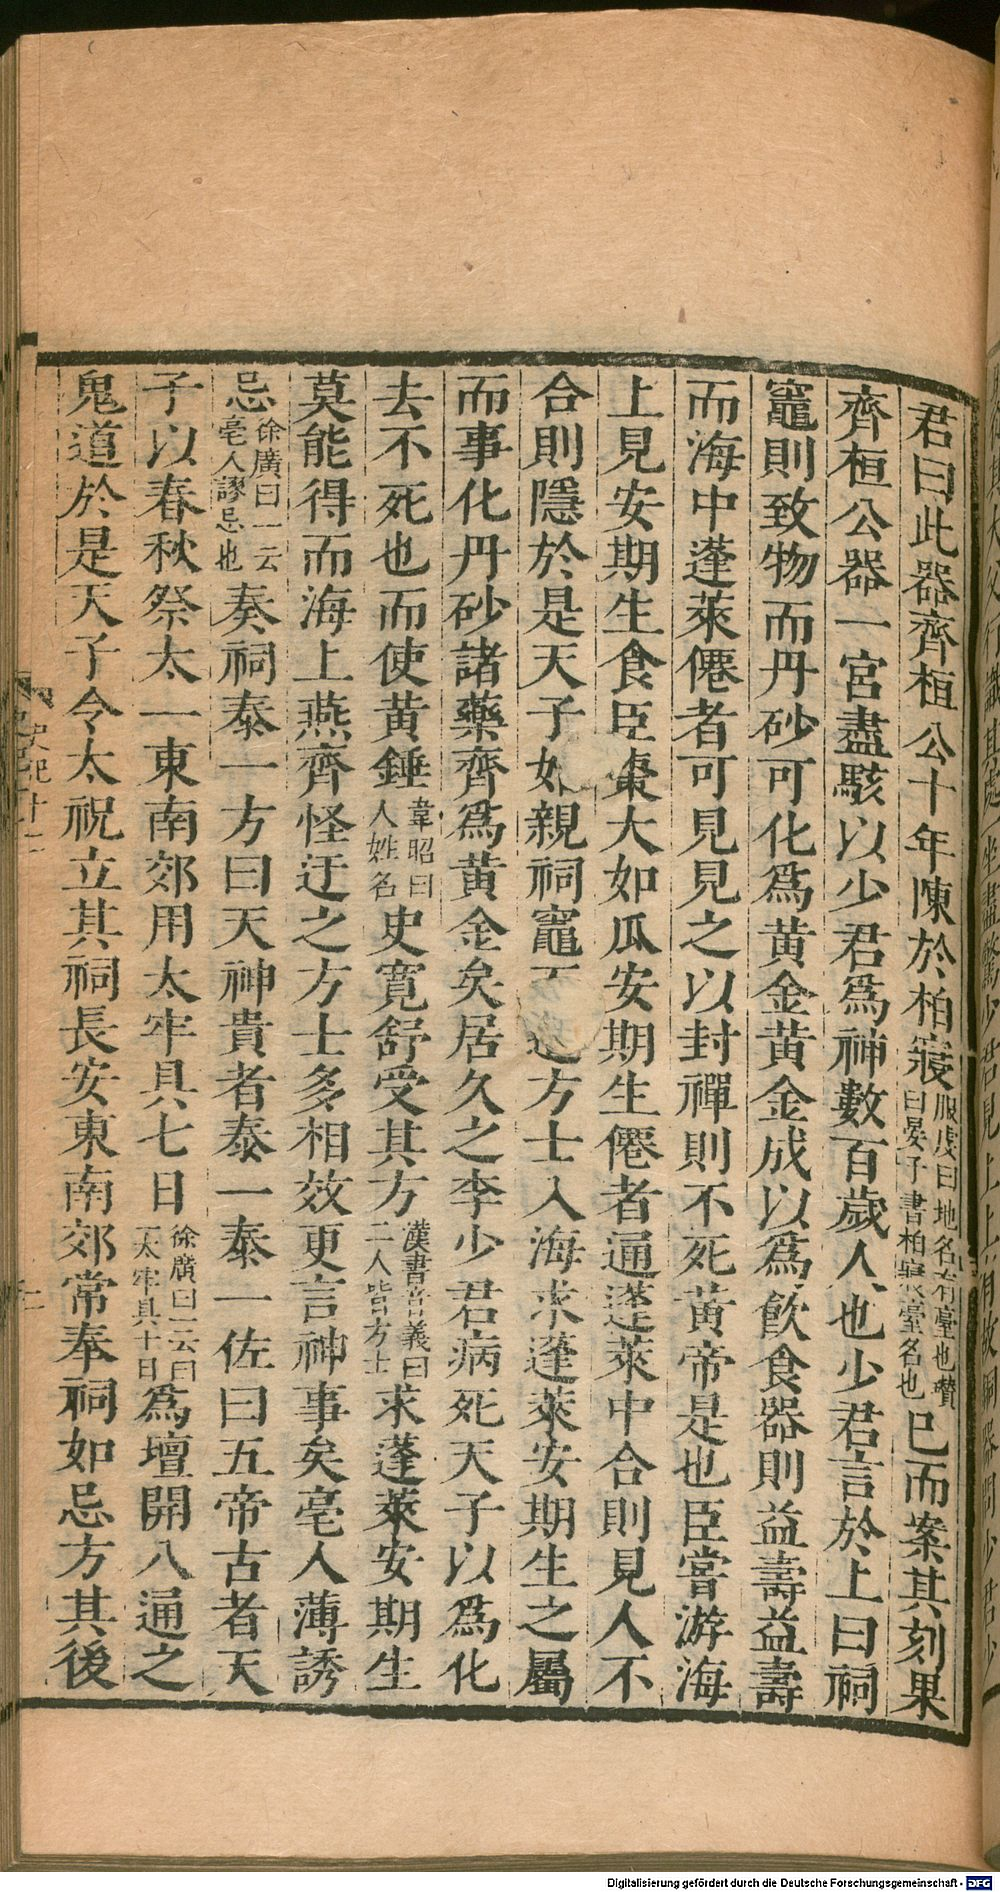 君曰此器齊桓公十年陳於柏寢服虔曰地名有臺也瓚曰晏子書柏寢臺名也已而案其刻果
齊桓公器一宮盡駭以少君爲神數百歲人也少君言於上曰祠
竈則致物而丹砂可化爲黄金黄金成以爲飲食器則益壽益壽
而海中蓬萊僊者可見見之以封禪則不死黄帝是也臣嘗游海
上見安期生食臣棗大如瓜安期生僊者通蓬萊中合則見人不
合則隱於是天子始親祠竈方士入海求蓬萊安期生之屬
而事化丹砂諸藥齊爲黄金矣居久之李少君病死天子以爲化
去不死也而使黄錘韋昭曰人姓名史寛舒受其方漢書音義曰二人皆方士求蓬萊安期生
莫能得而海上燕齊怪迂之方士多相效更言神事矣亳人薄誘
忌徐廣曰一云亳人謬忌也奏祠泰一方曰天神貴者泰一泰一佐曰五帝古者天
子以春秋祭太一東南郊用太牢具七日徐廣曰一云曰一太牢具十日爲壇開八通之
鬼道於是天子令太祝立其祠長安東南郊常奉祠如忌方其後
史記十二
Digitalisierung gefördert durch die Deutsche Forschungsgemeinschaft - DFG